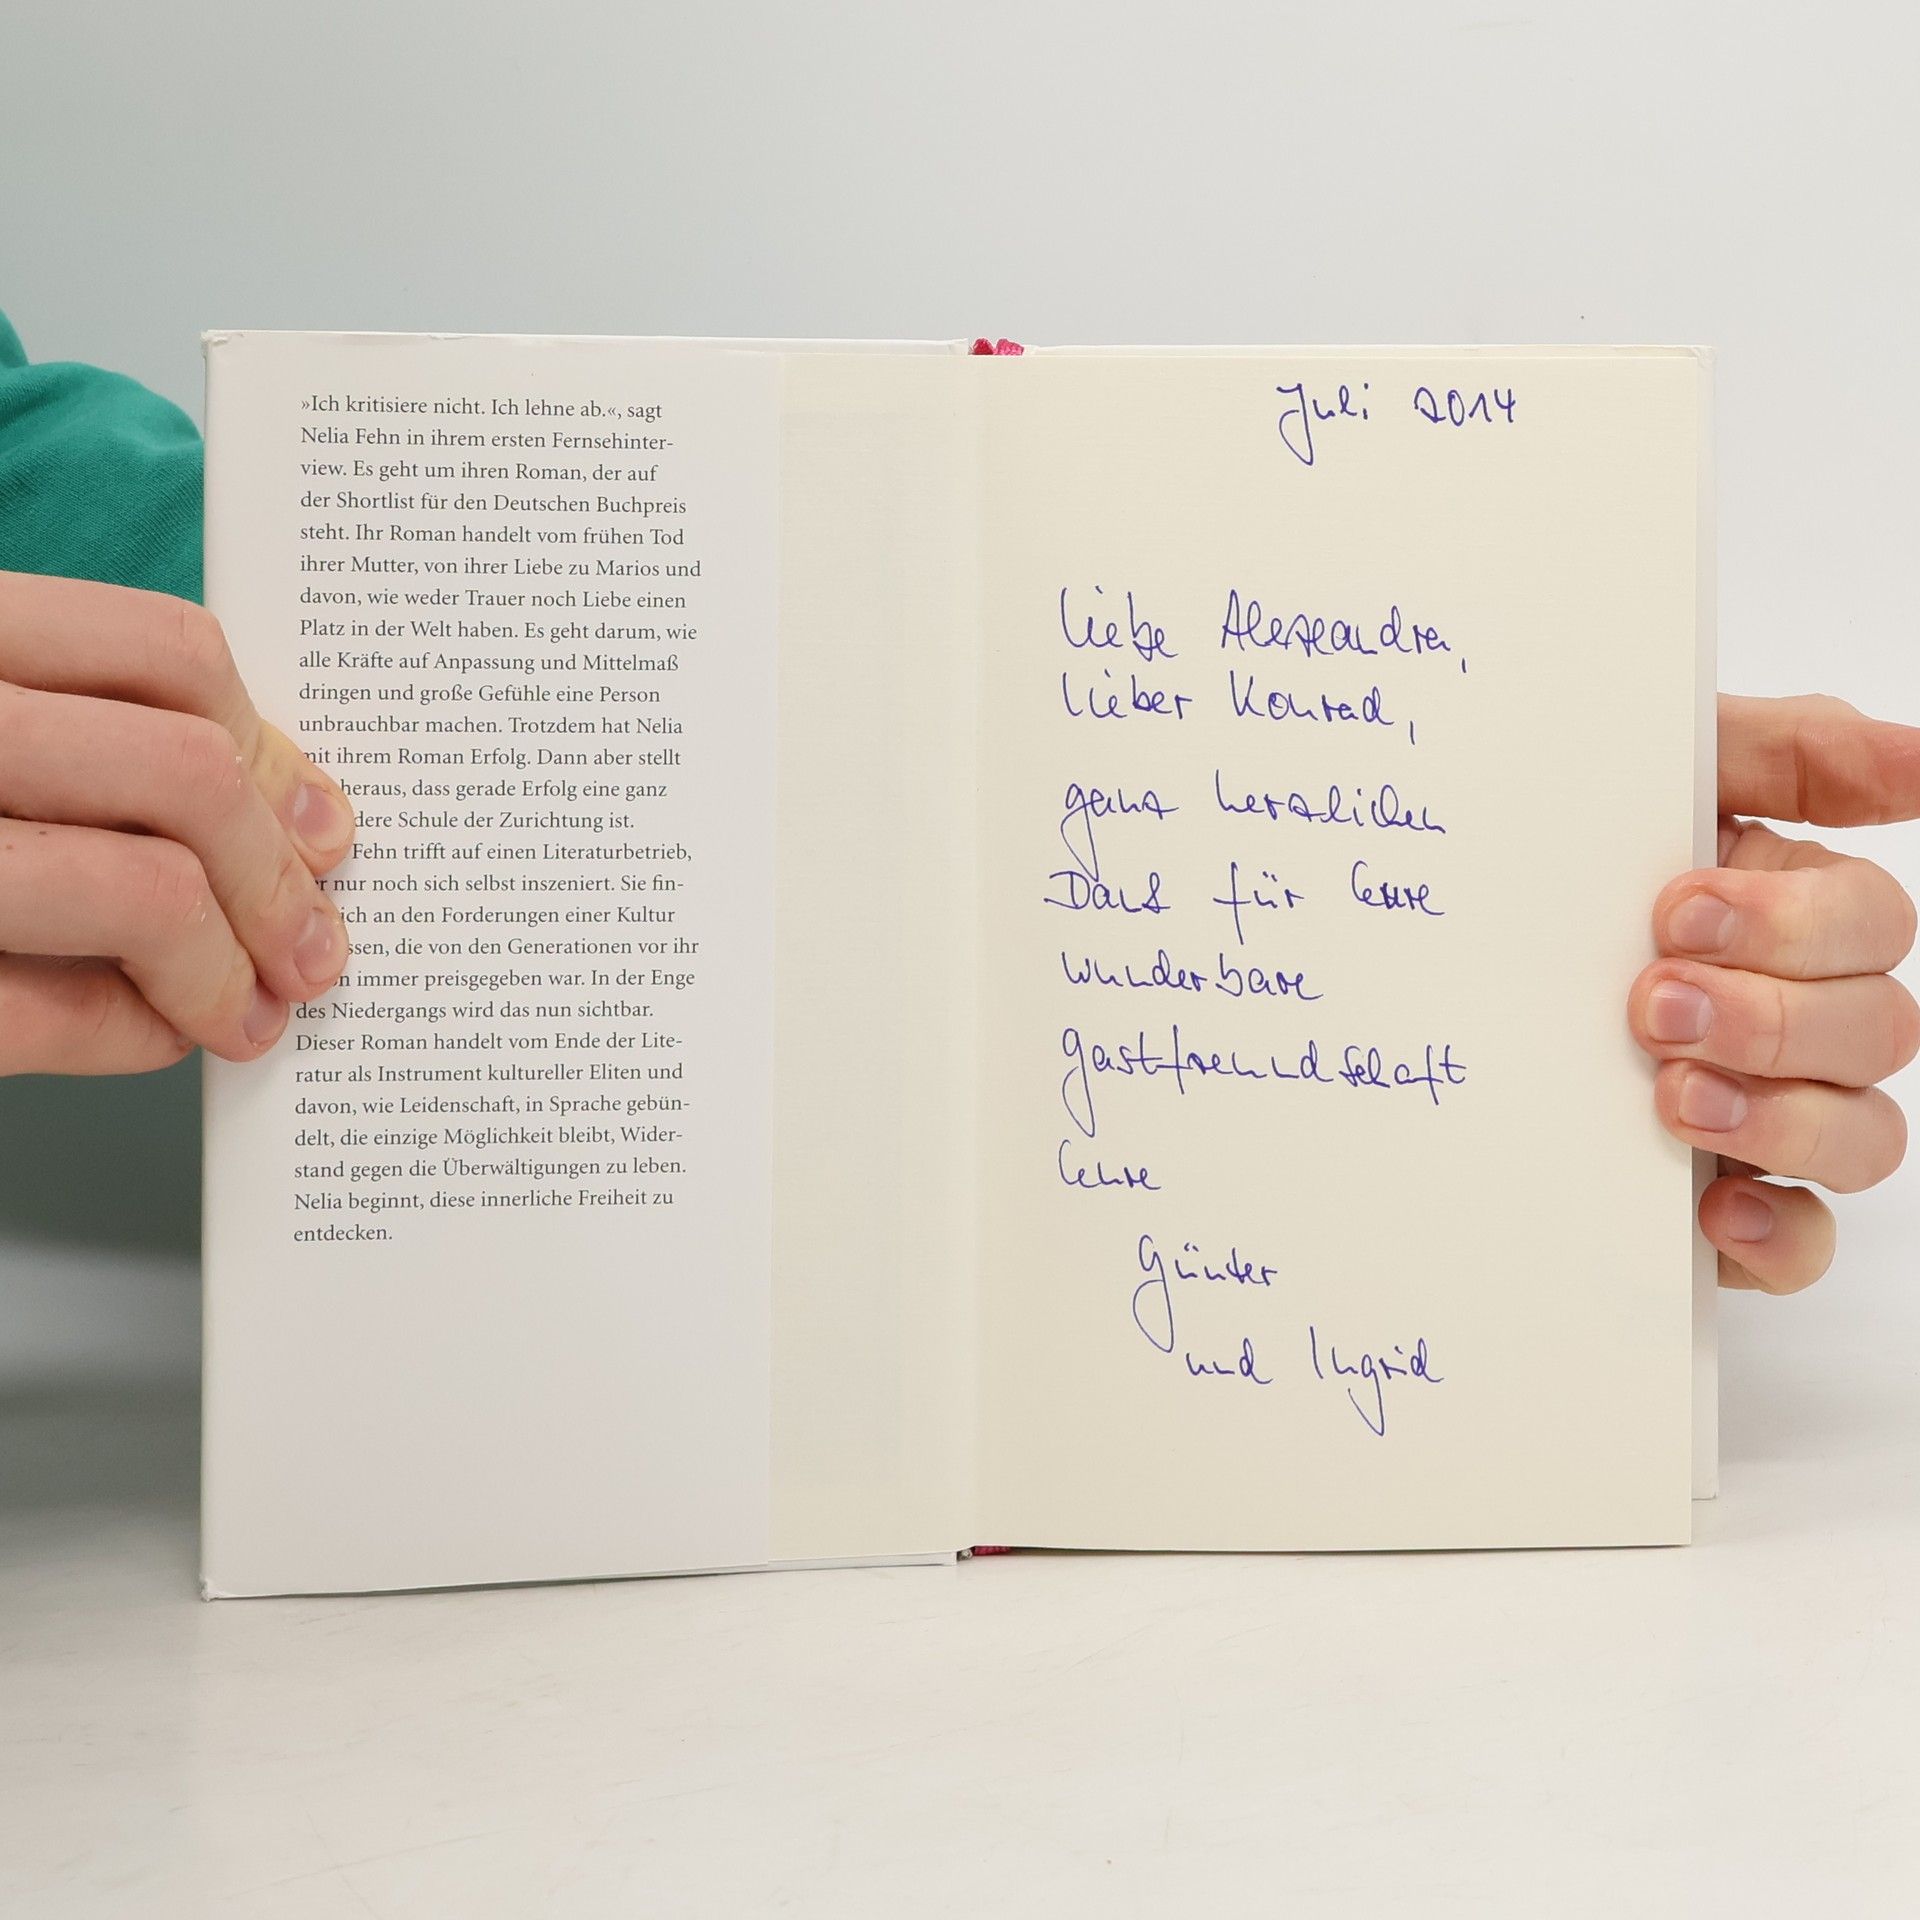 »Ich kritisiere nicht. Ich lehne ab.«, sagt
Nelia Fehn in ihrem ersten Fernsehinter-
view. Es geht um ihren Roman, der auf
der Shortlist für den Deutschen Buchpreis
steht. Ihr Roman handelt vom frühen Tod
ihrer Mutter, von ihrer Liebe zu Marios und
davon, wie weder Trauer noch Liebe einen
Platz in der Welt haben. Es geht darum, wie
alle Kräfte auf Anpassung und Mittelmaß
dringen und große Gefühle eine Person
unbrauchbar machen. Trotzdem hat Nelia
mit ihrem Roman Erfolg. Dann aber stellt
heraus, dass gerade Erfolg eine ganz
dere Schule der Zurichtung ist.
Fehn trifft auf einen Literaturbetrieb,
nur noch sich selbst inszeniert. Sie fin-
ich an den Forderungen einer Kultur
ssen, die von den Generationen vor ihr
n immer preisgegeben war. In der Enge
des Niedergangs wird das nun sichtbar.
Dieser Roman handelt vom Ende der Lite-
ratur als Instrument kultureller Eliten und
davon, wie Leidenschaft, in Sprache gebün-
delt, die einzige Möglichkeit bleibt, Wider-
stand gegen die Überwältigungen zu leben.
Nelia beginnt, diese innerliche Freiheit zu
entdecken.
Juli 2014
Liebe Alexandra,
lieber Konrad,
ganz herzlichen
Dank für Eure
wunderbare
Gastfreundschaft
Eure
Günter
und Ingrid